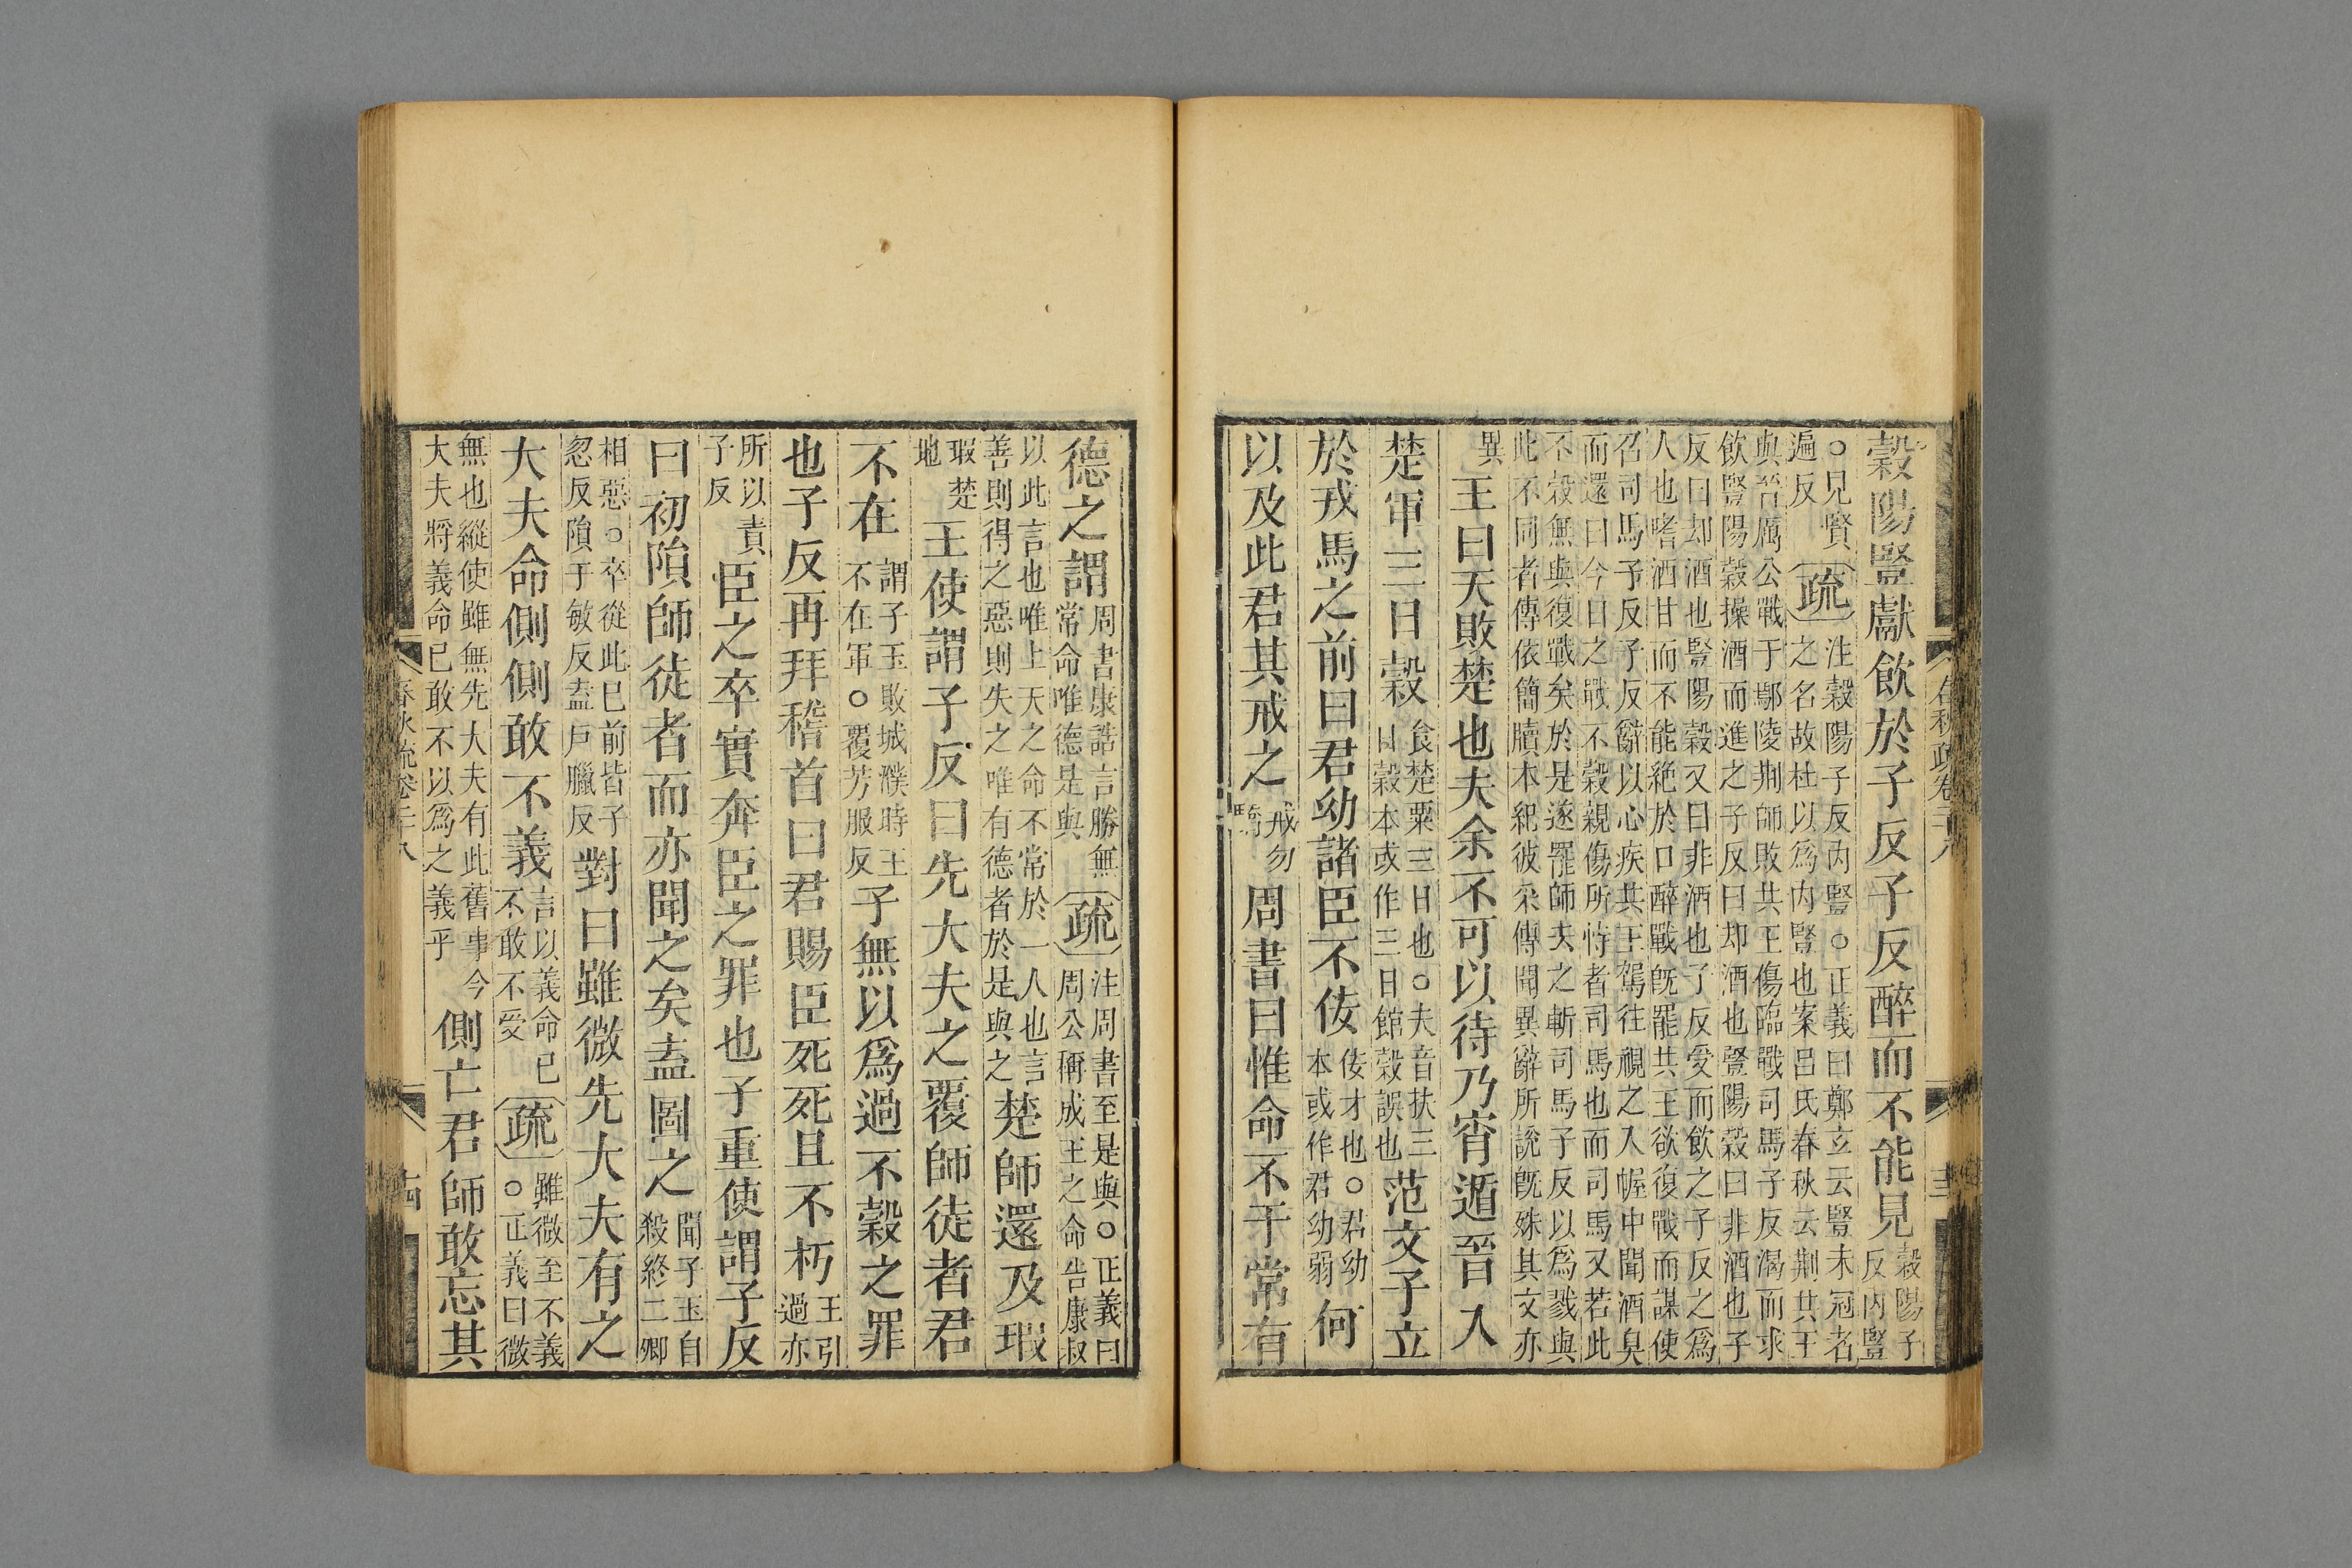 穀陽豎獻飲於子反子反醉而不能見穀陽子反內豎
○見賢遍反疏注穀陽子反內豎○正義曰鄭玄云豎未冠者之名故杜以爲內豎也案呂氏春秋云荆共王
與晉厲公戰于鄢陵荆師敗共王傷臨戰司馬子反渴而求
飲豎陽穀操酒而進之子反曰却酒也豎陽穀曰非酒也子
反曰却酒也豎陽穀又曰非酒也子反受而飲之子反之爲
人也嗜酒甘而不能絶於口醉戰旣罷共王欲復戰而謀使
召司馬子反子反辭以心疾共王駕往視之入幄中聞酒臭
而還曰今日之戰不穀親傷所恃者司馬也而司馬又若此
不穀無與復戰矣於是遂罷師夫之斬司馬子反以爲戮與
此不同者傳依簡牘本紀彼采傳聞異辭所說旣殊其文亦
異王曰天敗楚也夫余不可以待乃宵遁晉入
楚軍三日穀食楚粟三日也○夫音扶三日穀本或作三日館穀誤也范文子立
於戎馬之前曰君幼諸臣不佞佞才也○君幼本或作君幼弱何
以及此君其戒之戒勿驕周書曰惟命不于常有
德之謂周書康誥言勝無常命唯德是與疏注周書至是與○正義曰周公稱成王之命告康叔
以此言也唯上天之命不常於一人也言善則得之惡則失之唯有德者於是與之楚師還及瑕
瑕楚地王使謂子反曰先大夫之覆師徒者君
不在謂子玉敗城濮時王不在軍○覆芳服反子無以爲過不穀之罪
也子反再拜稽首曰君賜臣死死且不朽王引過亦
所以責子反臣之卒實奔臣之罪也子重使謂子反
曰初隕師徒者而亦聞之矣盍圖之聞子玉自殺終二卿
相惡○卒從此已前皆子忽反隕于敏反盍戶臘反對曰雖微先大夫有之
大夫命側側敢不義言以義命己不敢不受疏雖微至不義○正義曰微
無也縱使雖無先大夫有此舊事今大夫將義命己敢不以爲之義乎側亡君師敢忘其
春秋疏卷二十八